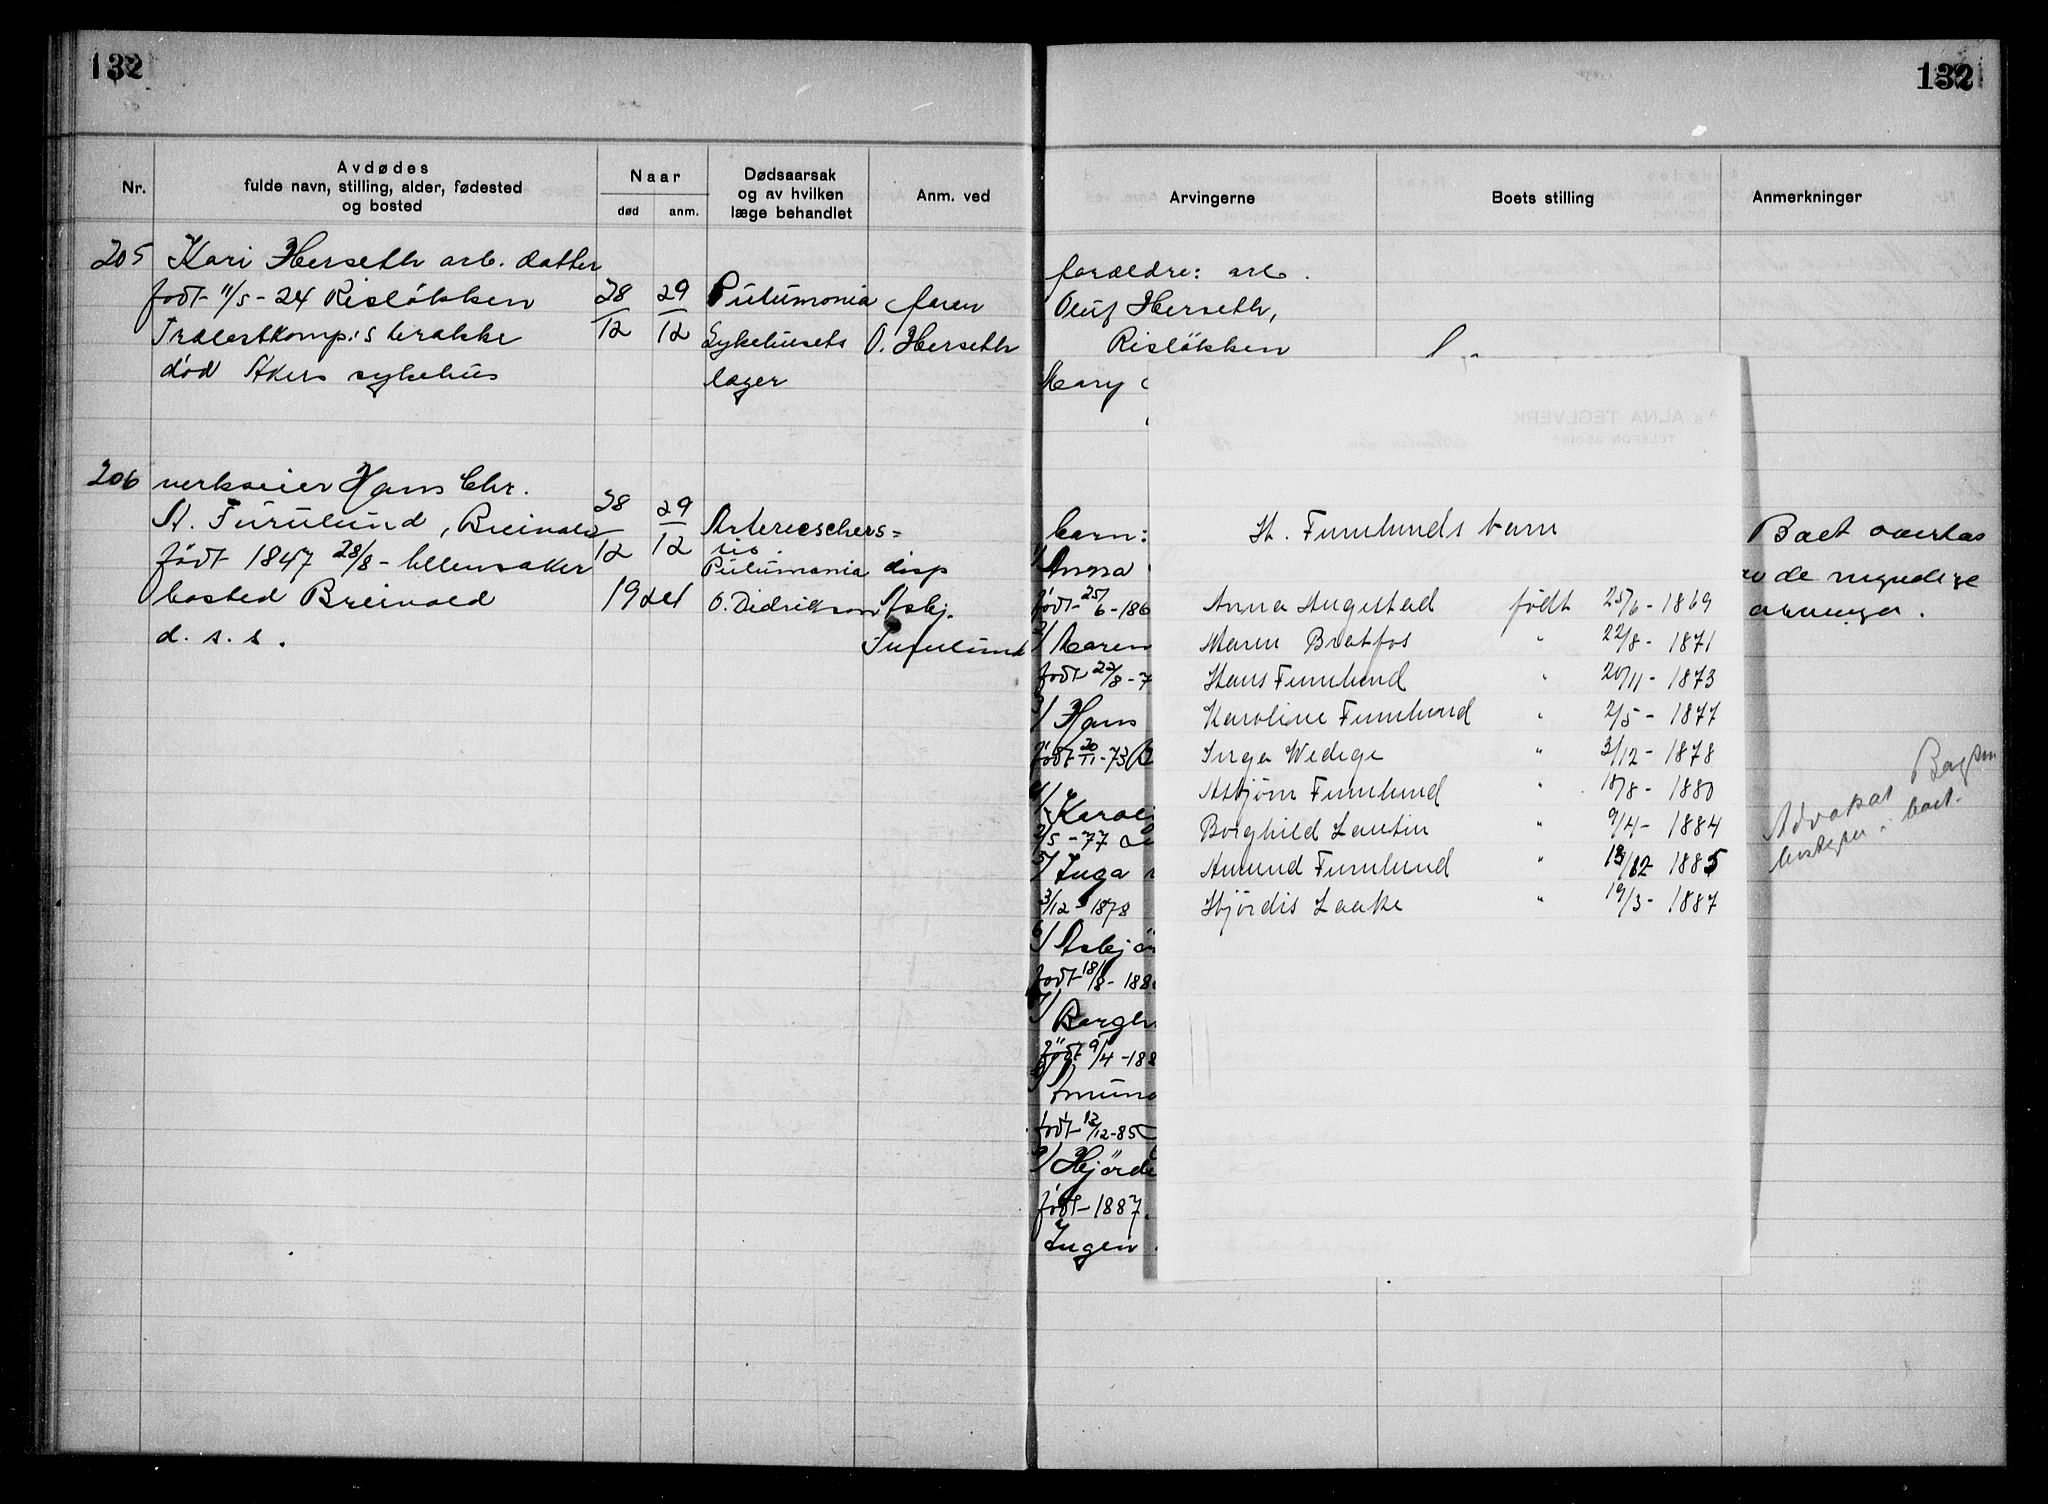 132
132
Nr.
Avdødes
fulde navn, stilling, alder, fødested
og bosted
Naar
død
anm.
Dødsaarsak
og av hvilken
læge behandlet
Anm. ved
Arvingerne
Boets stilling
Anmerkninger
205
Kari Herseth arb. datter
født 11/5-24 Risløkken
død Akers sykehus
28/12
29/12
Pulumonia
Sykehusets
læger
faren
O. Herseth
forældre: arb.
Oluf Herseth,
Risløkken
Mary
206
verkseier Hans Chr.
A. Furulund, Breivold
født 1847 28/8- Ullensaker
bosted Breivold
d. s. s.
28/12
29/12
1924
Pulumonia
O. Didrikson
disp
Asbj.
Furulund
barn:
1/ Anna
født 25/6-186
2/ Maren
født 22/8-7
3/ Hans
født 20/11-73
4/ Karoli
2/5-77
5/ Inga
3/12-1878
6/ Asbjø
født 18/8-188
7/ Borgh
født 9/4-188
8/ Amund
født 13/12-85
9/ Hjørdi
født-1887
Ingen
A/S ALNA TEGLVERK
TELEFON
H. Furulunds barn
Anna Augestad født 25/6-1869
Maren Bratfos " 22/8-1871
Hans Furulund " 20/11-1873
Karoline Furulund " 2/5-1877
Inga Wedege " 3/12-1878
Asbjørn Furulund " 18/8-1880
Borghild Lautin " 9/4-1884
Amund Furulund " 13/12 1885
Hjørdis Laake " 19/3-1887
Boet overtas
av de myndige
arvinger.
Advokat
boet.